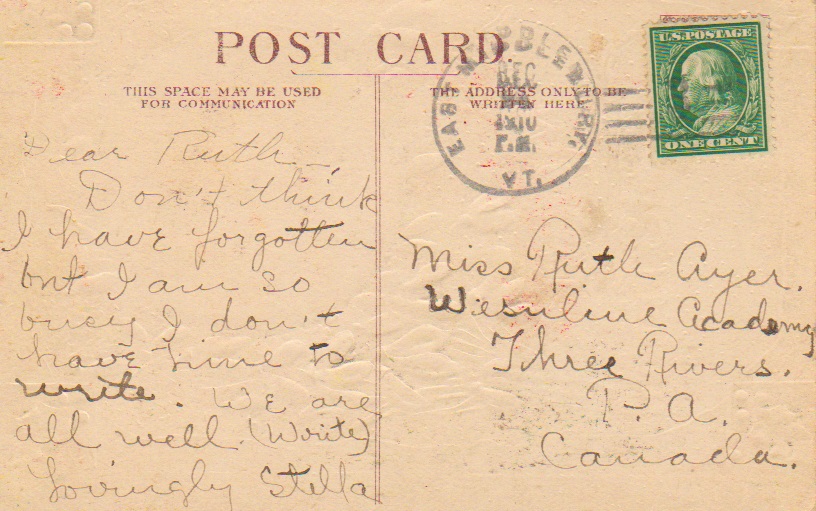 POST CARD.
THIS SPACE MAY BE USED
FOR COMMUNICATION
THE ADDRESS ONLY TO BE
WRITTEN HERE.
EAST
DEC
1910
P.M.
VT.
U.S. POSTAGE
ONE CENT
Dear Ruth—
Don't think
I have forgotten
but I am so
busy I don't
have time to
write. We are
all well. (Write)
Lovingly Stella
Miss Ruth Ayer.
Academy
Three Rivers.
P. A.
Canada.